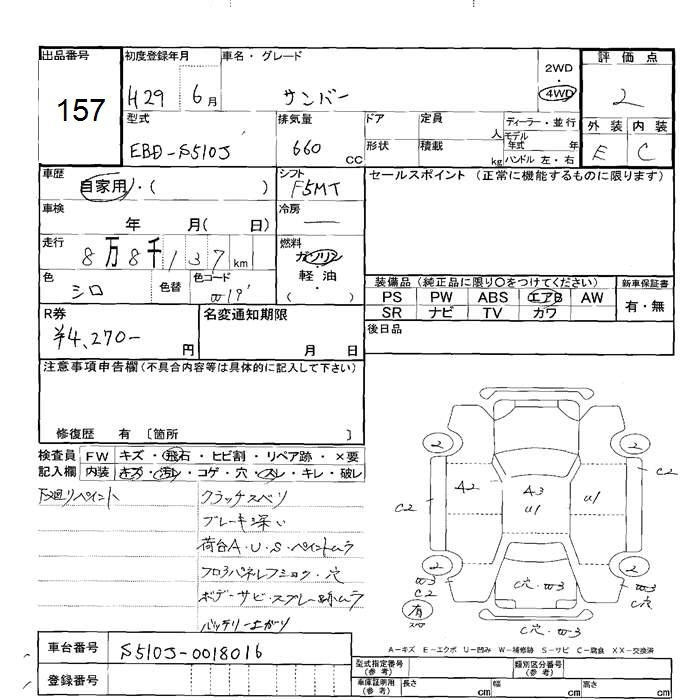 出品番号
157
初度登録年月
H29 6月
車名・グレード
サンバー
2WD
・
4WD
評価点
2
外装 内装
E C
型式
EBD-S510J
排気量
660 CC
ドア
形状
定員 人
積載 kg
ディーラー・並行
モデル年式 年
ハンドル 左・右
車歴
自家用・( )
シフト
F5MT
セールスポイント (正常に機能するものに限ります)
車検
年 月( 日)
冷房
—
走行
8万8千137km
燃料
ガソリン
・
軽油
・
( )
色
シロ
色替
色コード
W19
装備品 (純正品に限り○をつけてください)
PS PW ABS エアB AW
SR ナビ TV カワ
新車保証書
有・無
R券
¥4,270-
円
名変通知期限
月 日
後日品
注意事項申告欄(不具合内容等は具体的に記入して下さい)
修復歴 有 〔箇所 〕
検査員記入欄
FW キズ・飛石・ヒビ割・リペア跡・×要
内装 キズ・汚レ・コゲ・穴・スレ・キレ・破レ
下廻リペイント
クラッチスベリ
ブレーキ深い
荷台A・U・S・ペイントムラ
バッテリー上がり
2 2
A2 A3 U1 U1
C2 C2
2 2
W3 C2
C穴・W3
W3 C穴
有
スペア
C穴・W3
A-キズ E-エクボ U-凹み W-補修跡 S-サビ C-腐食 XX-交換済
車台番号
S510J-0018016
登録番号
型式指定番号(参考)
類別区分番号(参考)
車庫証明用(参考) 長さ cm 幅 cm 高さ cm